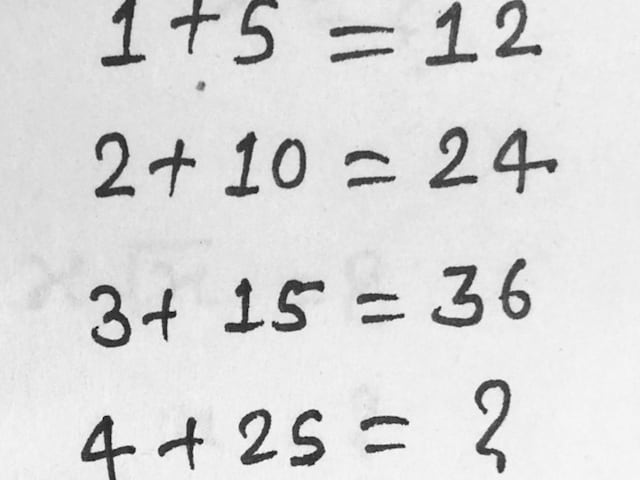 1+5=12
2+10=24
3+15=36
4+25=?